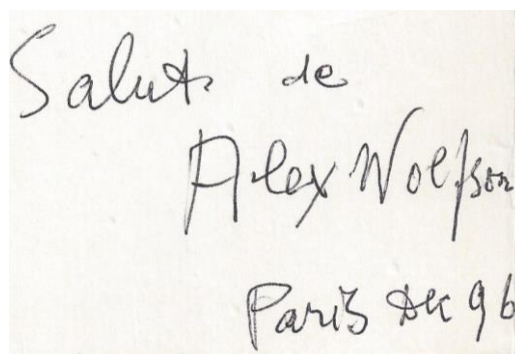 Salut de
Alex Wolfson
Paris Dec 96